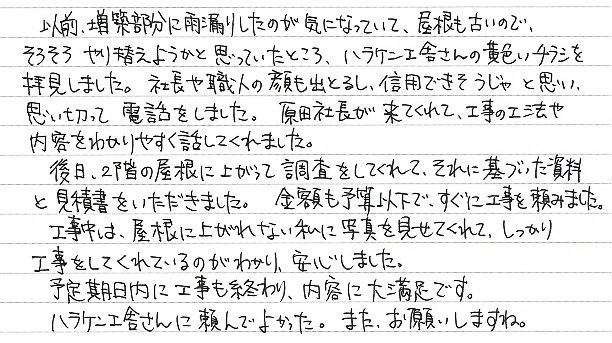 以前、増築部分に雨漏りしたのが気になっていて、屋根も古いので、
そろそろやり替えようかと思っていたところ、ハラケン工舎さんの黄色いチラシを
拝見しました。社長や職人の顔も出とるし、信用できそうじゃと思い、
思い切って電話をしました。原田社長が来てくれて、工事の工法や
内容をわかりやすく話してくれました。
後日、2階の屋根に上がって調査をしてくれて、それに基づいた資料
と見積書をいただきました。金額も予算以下で、すぐに工事を頼みました。
工事中は、屋根に上がれない私に写真を見せてくれて、しっかり
工事をしてくれているのがわかり、安心しました。
予定期日内に工事も終わり、内容に大満足です。
ハラケン工舎さんに頼んでよかった。また、お願いしますね。